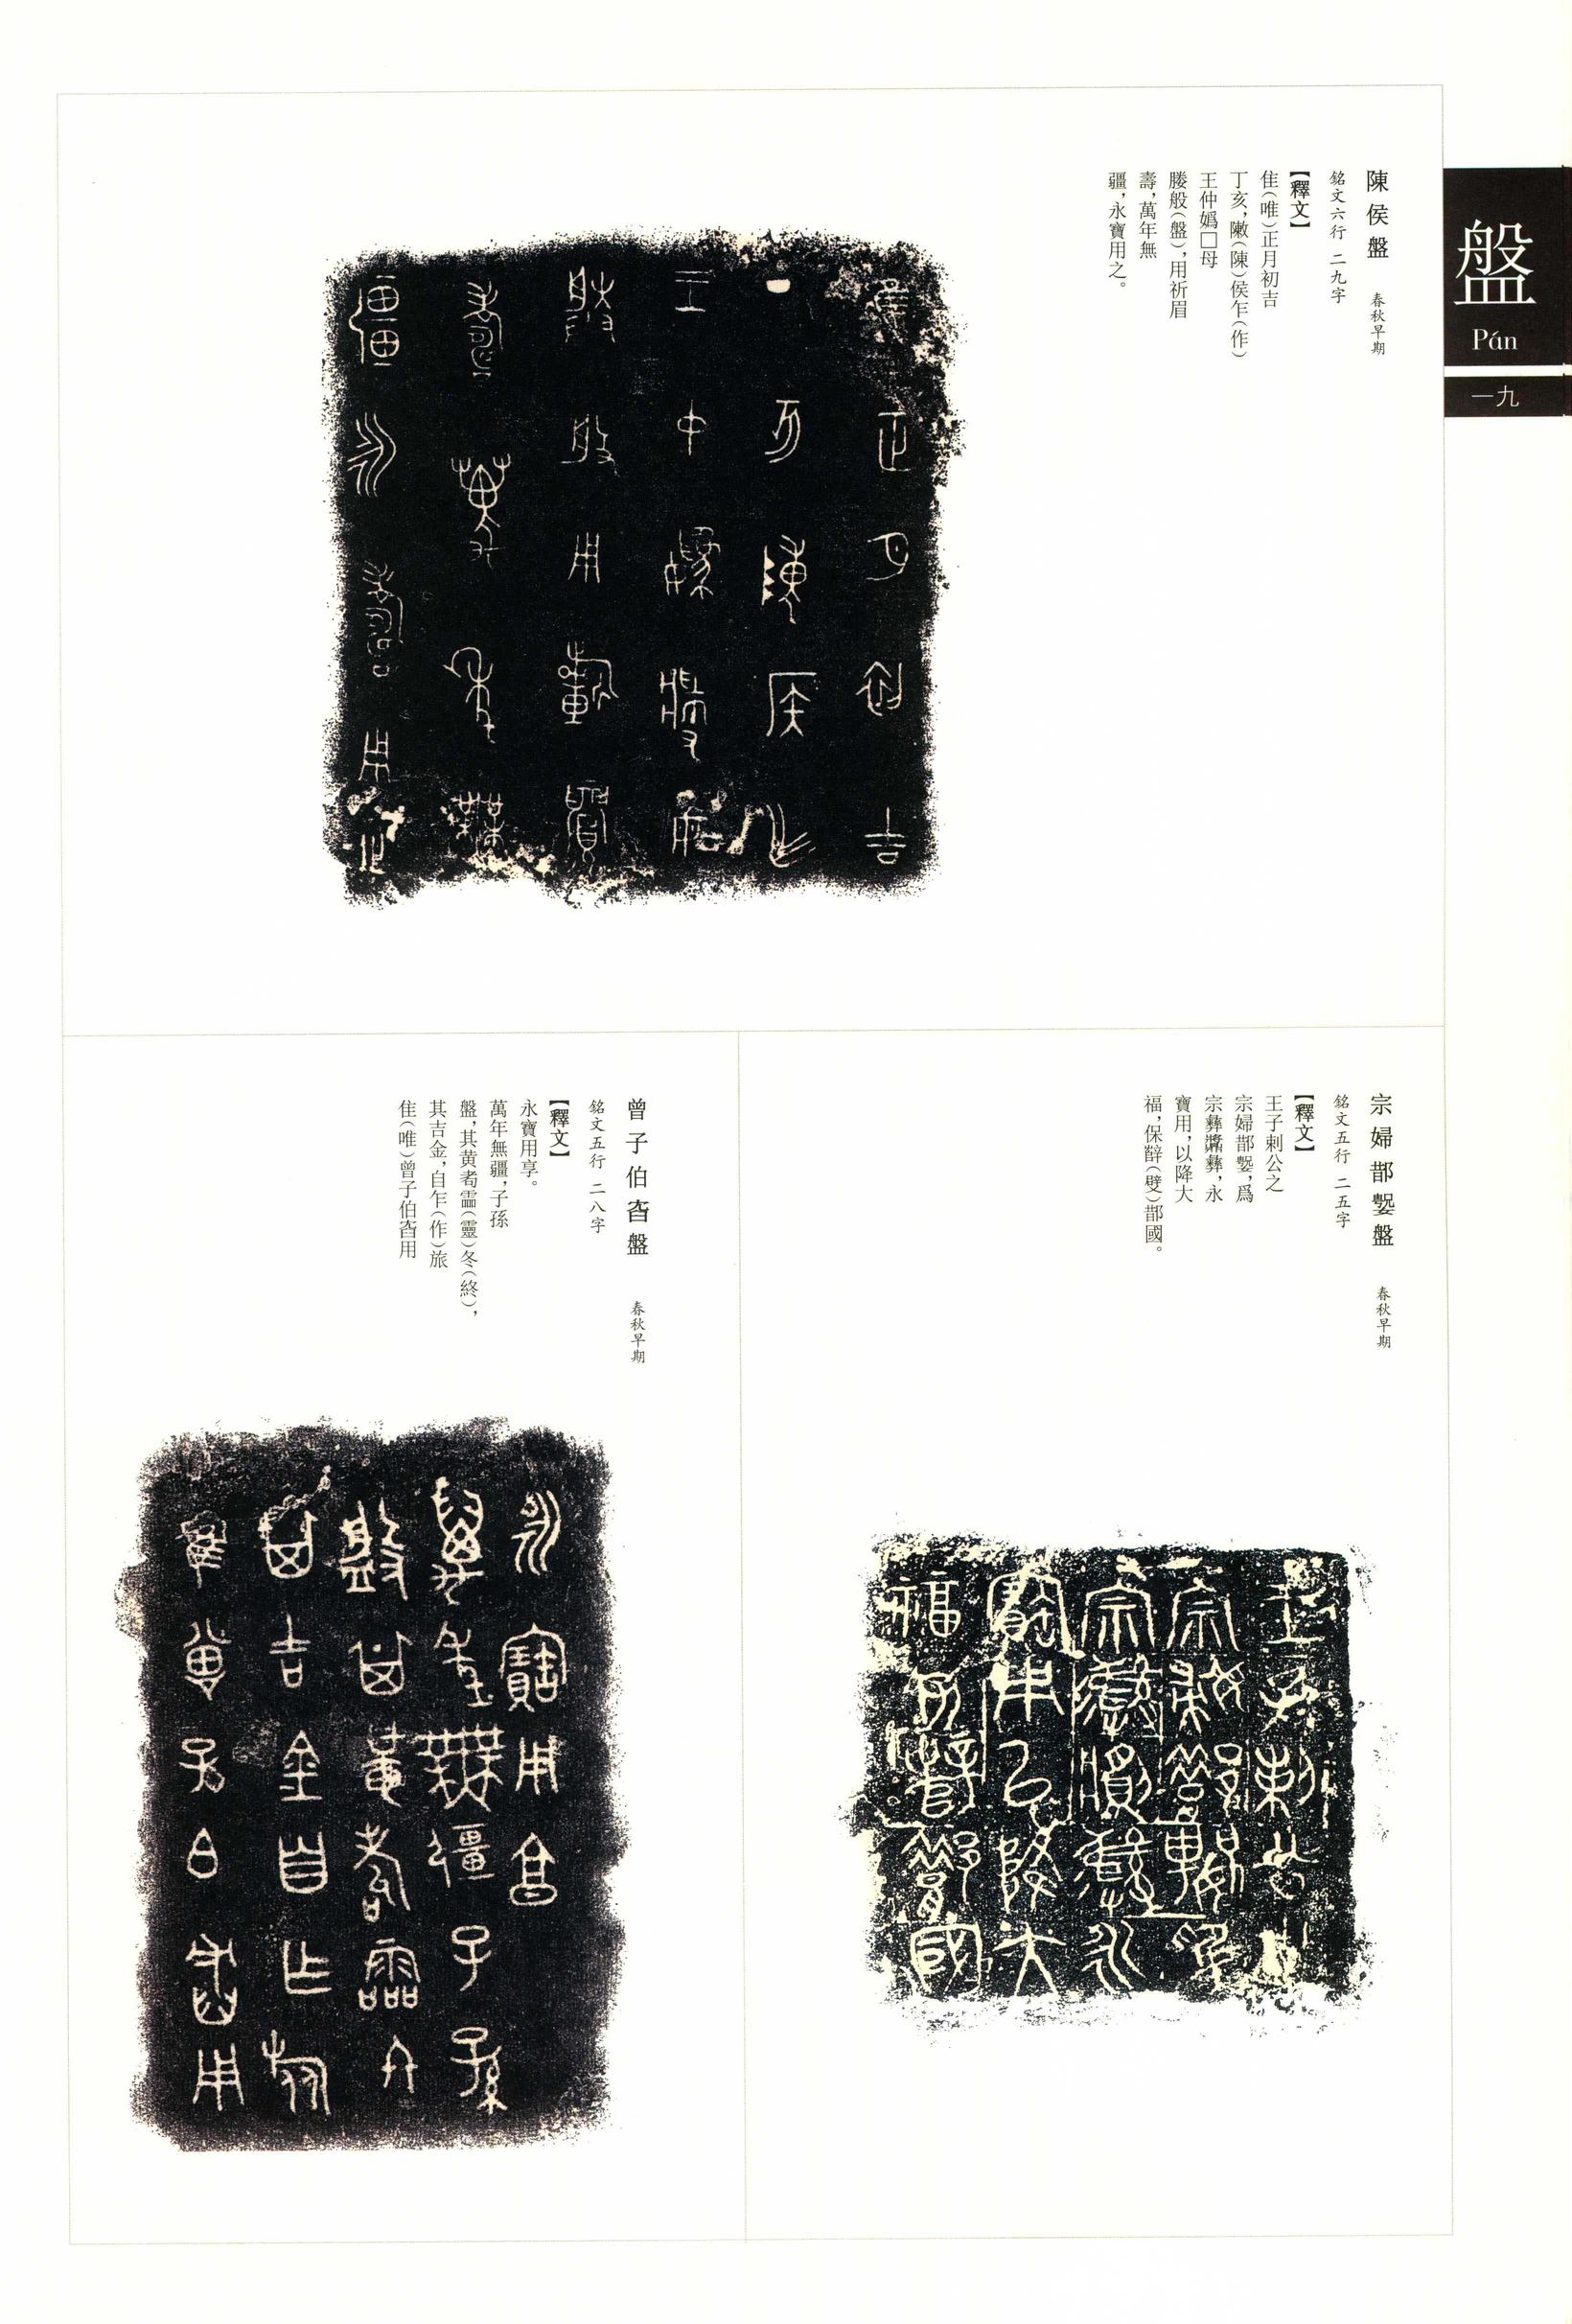 盤
Pán
一九
陳侯盤 春秋早期
銘文六行 二九字
【釋文】
隹（唯）正月初吉
丁亥，敶（陳）侯乍（作）
王仲媯□母
媵般（盤），用祈眉
壽，萬年無
疆，永寶用之。
宗婦鄁盤 春秋早期
銘文五行 二五字
【釋文】
王子剌公之
宗婦鄁，爲
宗彝彝，永
寶用，以降大
福，保辥（嬖）鄁國。
曾子伯盤 春秋早期
銘文五行 二八字
【釋文】
永寶用享。
萬年無疆，子孫
盤，其黄耇霝（靈）冬（終），
其吉金，自乍（作）旅
隹（唯）曾子伯用